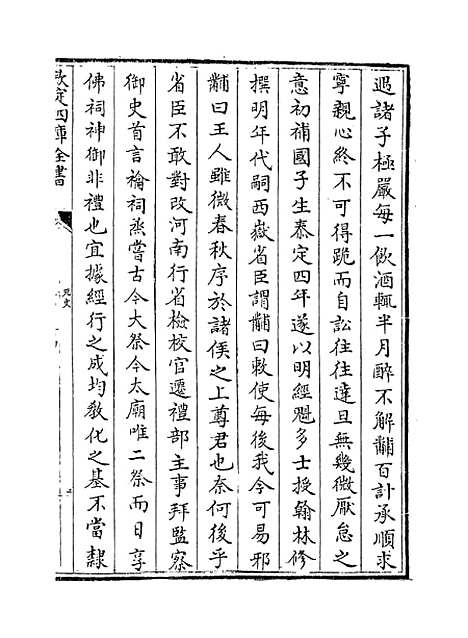 過諸子極嚴每一飲酒輒半月醉不解黼百計承順求
寧親心終不可得跪而自訟往往達旦無幾微厭怠之
意初補國子生泰定四年遂以明經魁多士授翰林修
撰明年代嗣西嶽省臣謂黼曰敕使每後我今可易邪
黼曰王人雖微春秋序於諸侯之上尊君也奈何後乎
省臣不敢對改河南行省檢校官遷禮部主事拜監察
御史首言禴祠烝嘗古今大祭今太廟唯二祭而日享
佛祠神御非禮也宜據經行之成均教化之基不當隸
欽定四庫全書
元史